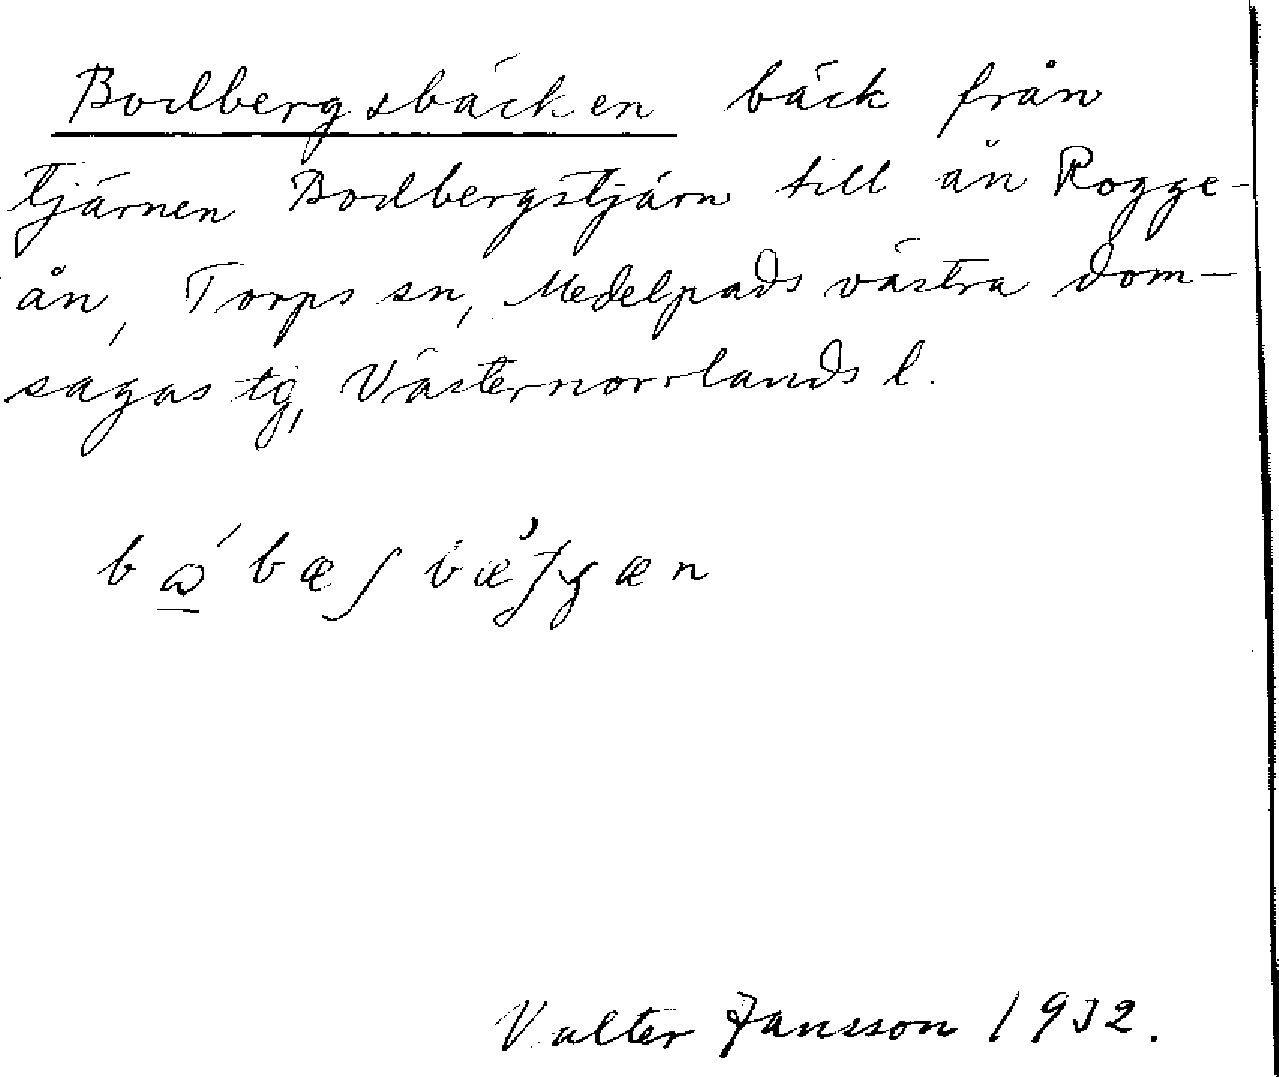 Bodbergsbäcken bäck från
tjärnen Bodbergstjärn till ån Rogge-
ån, Torps sn, Medelpads västra dom-
sagas tg, Västernorrlands l.
Valter Jansson 1932.